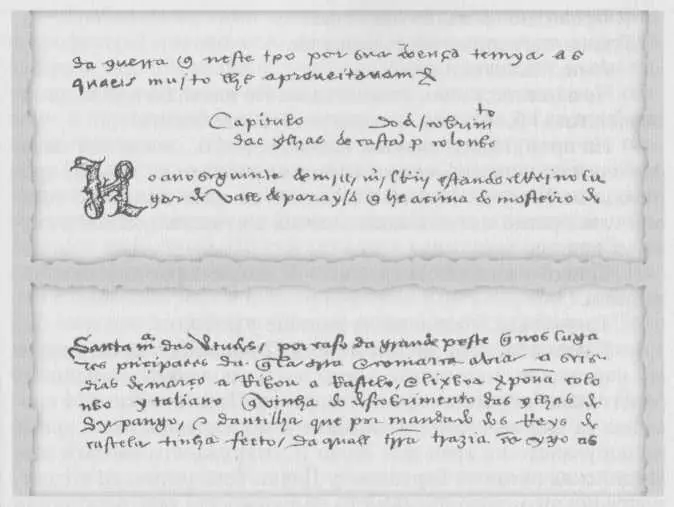 da guerra q̃ neste tpo por sua doença temya as
quaes mujto lhe aproueitauam
Capitulo do descobrimto
das ylhas de castela p colonbo
No ano seguinte de mill iiij lRiij estando elRey no lu
gar de Vall de parayso q̃ he acima do mosteiro de
Santa mª das Vtudes, por caso da grande peste q̃ nos luga
res prĩcipaes daq̃lla comarca avia a seis
dias de março aRibou a Rastelo, e lixboa xpouã colo
nbo ytaliano q̃ vinha do descobrimento das ylhas de
Cypango, e dantilha que por mandado dos Reys de
castela tinha fecto, da quall trra trazia cõsygo as